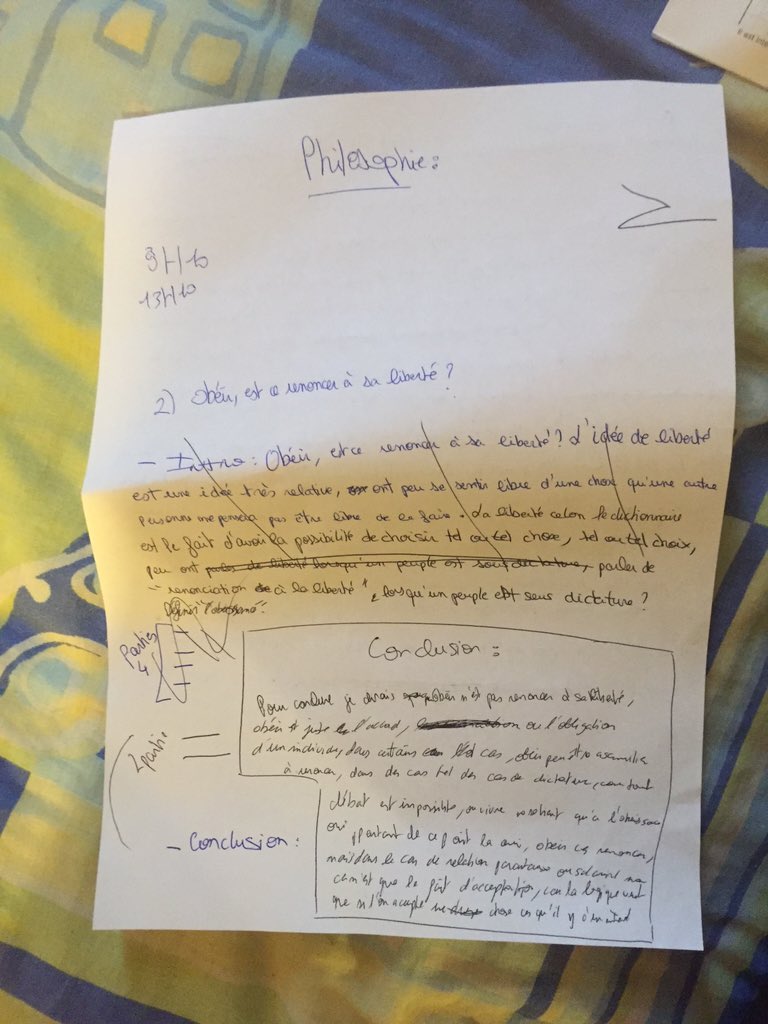 Philosophie:
9H10
13H10
2) Obéir, est ce renoncer à sa liberté ?
- Intro : Obéir, est ce renoncer à sa liberté ? L'idée de liberté
est une idée très relative, ont peu se sentir libre d'une chose qu'une autre
personne ne pensera pas être libre de le faire. La liberté celon le dictionnaire
est le fait d'avoir la possibilité de choisir tel ou tel chose, tel ou tel choix,
peu ont parler de liberté lorsqu'un peuple est sous dictature, parler de
"renonciation à la liberté", lorsqu'un peuple est sous dictature ?
Parties
4
2 partie
Conclusion :
Pour conclure je dirais obéir n'est pas renoncer à sa liberté,
obéir est juste l'accord, ou l'obligation
d'un individu, dans certains cas, obéir peu être
à renoncer, dans des cas tel des cas de dictature, car tout
débat est impossible, qu'à l'obéissance
partant de ce point la oui, obéir renoncer,
mais dans le cas de relation
ce n'est que le fait d'acceptation, car la logique veut
que si l'on accepte chose qu'il y
- Conclusion :